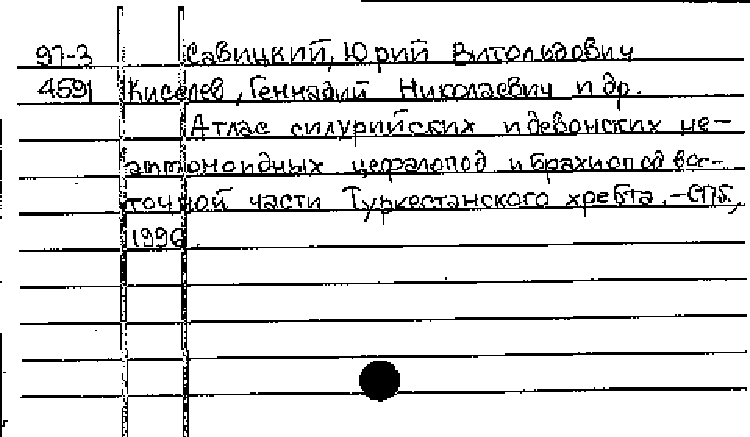 97-3 Савицкий, Юрий Витольдович
4591 Киселев, Геннадий Николаевич и др.
Атлас силурийских и девонских не-
аммоноидных цефалопод и брахиопод вос-
точной части Туркестанского хребта. - СПб,
1996